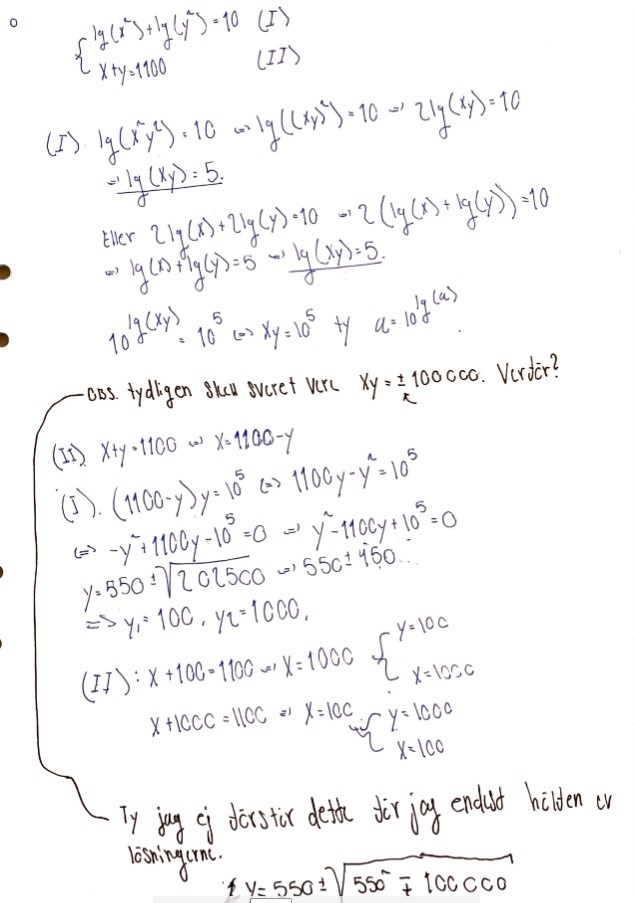 { lg(x²)+lg(y²)=10 (I)
x+y=1100 (II)
(I) lg(x²y²)=10 ⇔ lg((xy)²)=10 ⇔ 2lg(xy)=10
⇔ lg(xy)=5.
Eller 2lg(x)+2lg(y)=10 ⇔ 2(lg(x)+lg(y))=10
⇔ lg(x)+lg(y)=5 ⇔ lg(xy)=5.
10^lg(xy) = 10^5 ⇔ xy=10^5 ty a=10^lg(a).
OBS. tydligen skall svaret vara xy=±100000. Varför?
(II) x+y=1100 ⇔ x=1100-y
(I). (1100-y)y=10^5 ⇔ 1100y-y²=10^5
⇔ -y²+1100y-10^5=0 ⇔ y²-1100y+10^5=0
y=550±√202500 ⇔ 550±450...
=> y₁=100, y₂=1000,
(II): x+100=1100 ⇔ x=1000 { y=100
x=1000
x+1000=1100 ⇔ x=100 { y=1000
x=100
Ty jag ej förstår detta får jag endast hälften av
lösningarna.
y=550±√550²∓100000